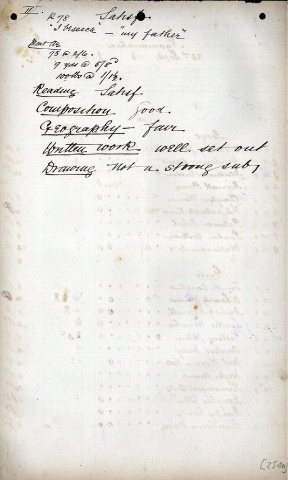 II
R 78 Satisf.
"I beseech" — "my father"
Ment Ar
75 @ 2/6.
9 yds @
100 lbs @
Reading Satisf
Composition Good.
Geography — fair
Written work well set out
Drawing not a strong subj